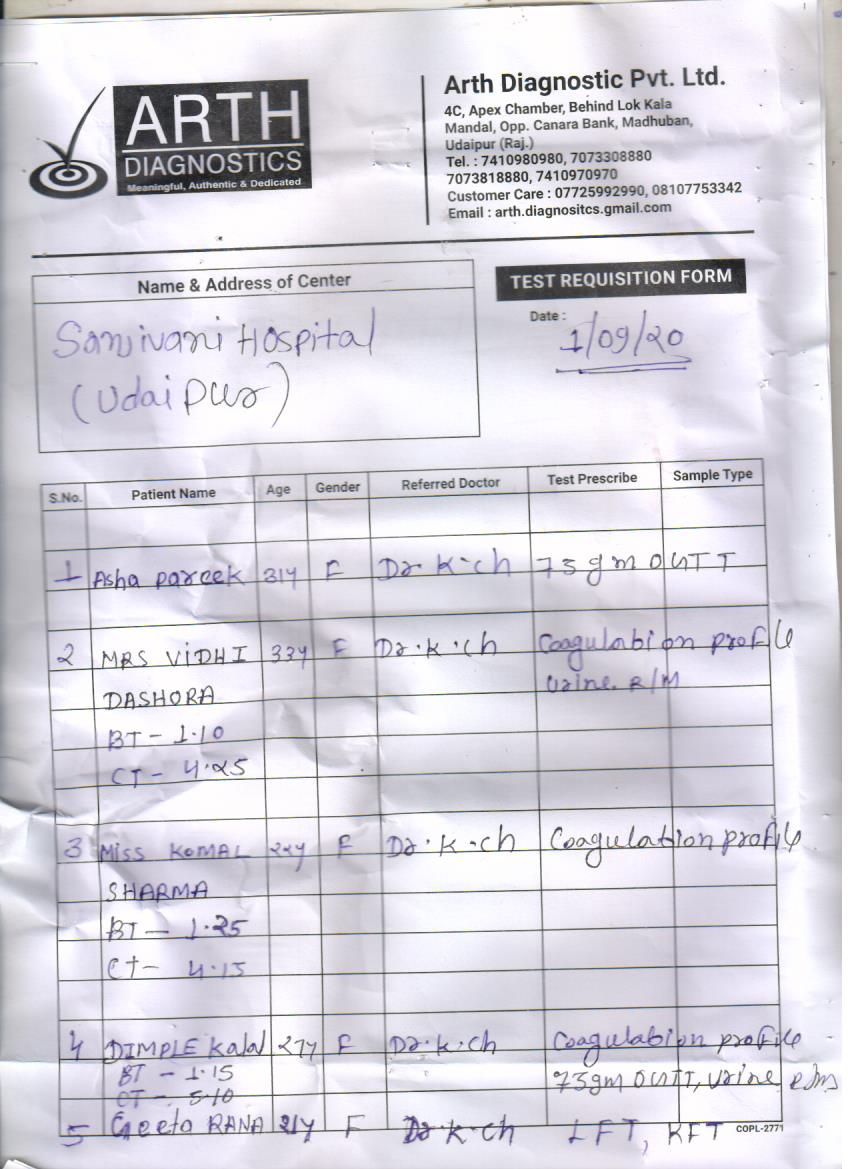 ARTH
DIAGNOSTICS
Meaningful, Authentic & Dedicated
Arth Diagnostic Pvt. Ltd.
4C, Apex Chamber, Behind Lok Kala
Mandal, Opp. Canara Bank, Madhuban,
Udaipur (Raj.)
Tel. : 7410980980, 7073308880
7073818880, 7410970970
Customer Care : 07725992990, 08107753342
Email : arth.diagnositcs.gmail.com
Name & Address of Center
Sanjivani Hospital
(Udaipur)
TEST REQUISITION FORM
Date :
1/09/20
S.No. Patient Name Age Gender Referred Doctor Test Prescribe Sample Type
1 Asha pareek 31y F Dr. K.ch 75gm OGTT
2 MRS VIDHI 33y F Dr.K.ch Coagulation profile
DASHORA Urine R/M
BT - 1.10
CT - 4.25
3 Miss KOMAL 22y F Dr.K.ch Coagulation profile
SHARMA
BT - 1.25
CT - 4.15
4 DIMPLE Kalal 27y F Dr.K.ch Coagulation profile
BT - 1.15 75gm OGTT, Urine R/M
CT - 5.10
5 Geeta RANA 21y F Dr.K.ch LFT, KFT COPL-2771